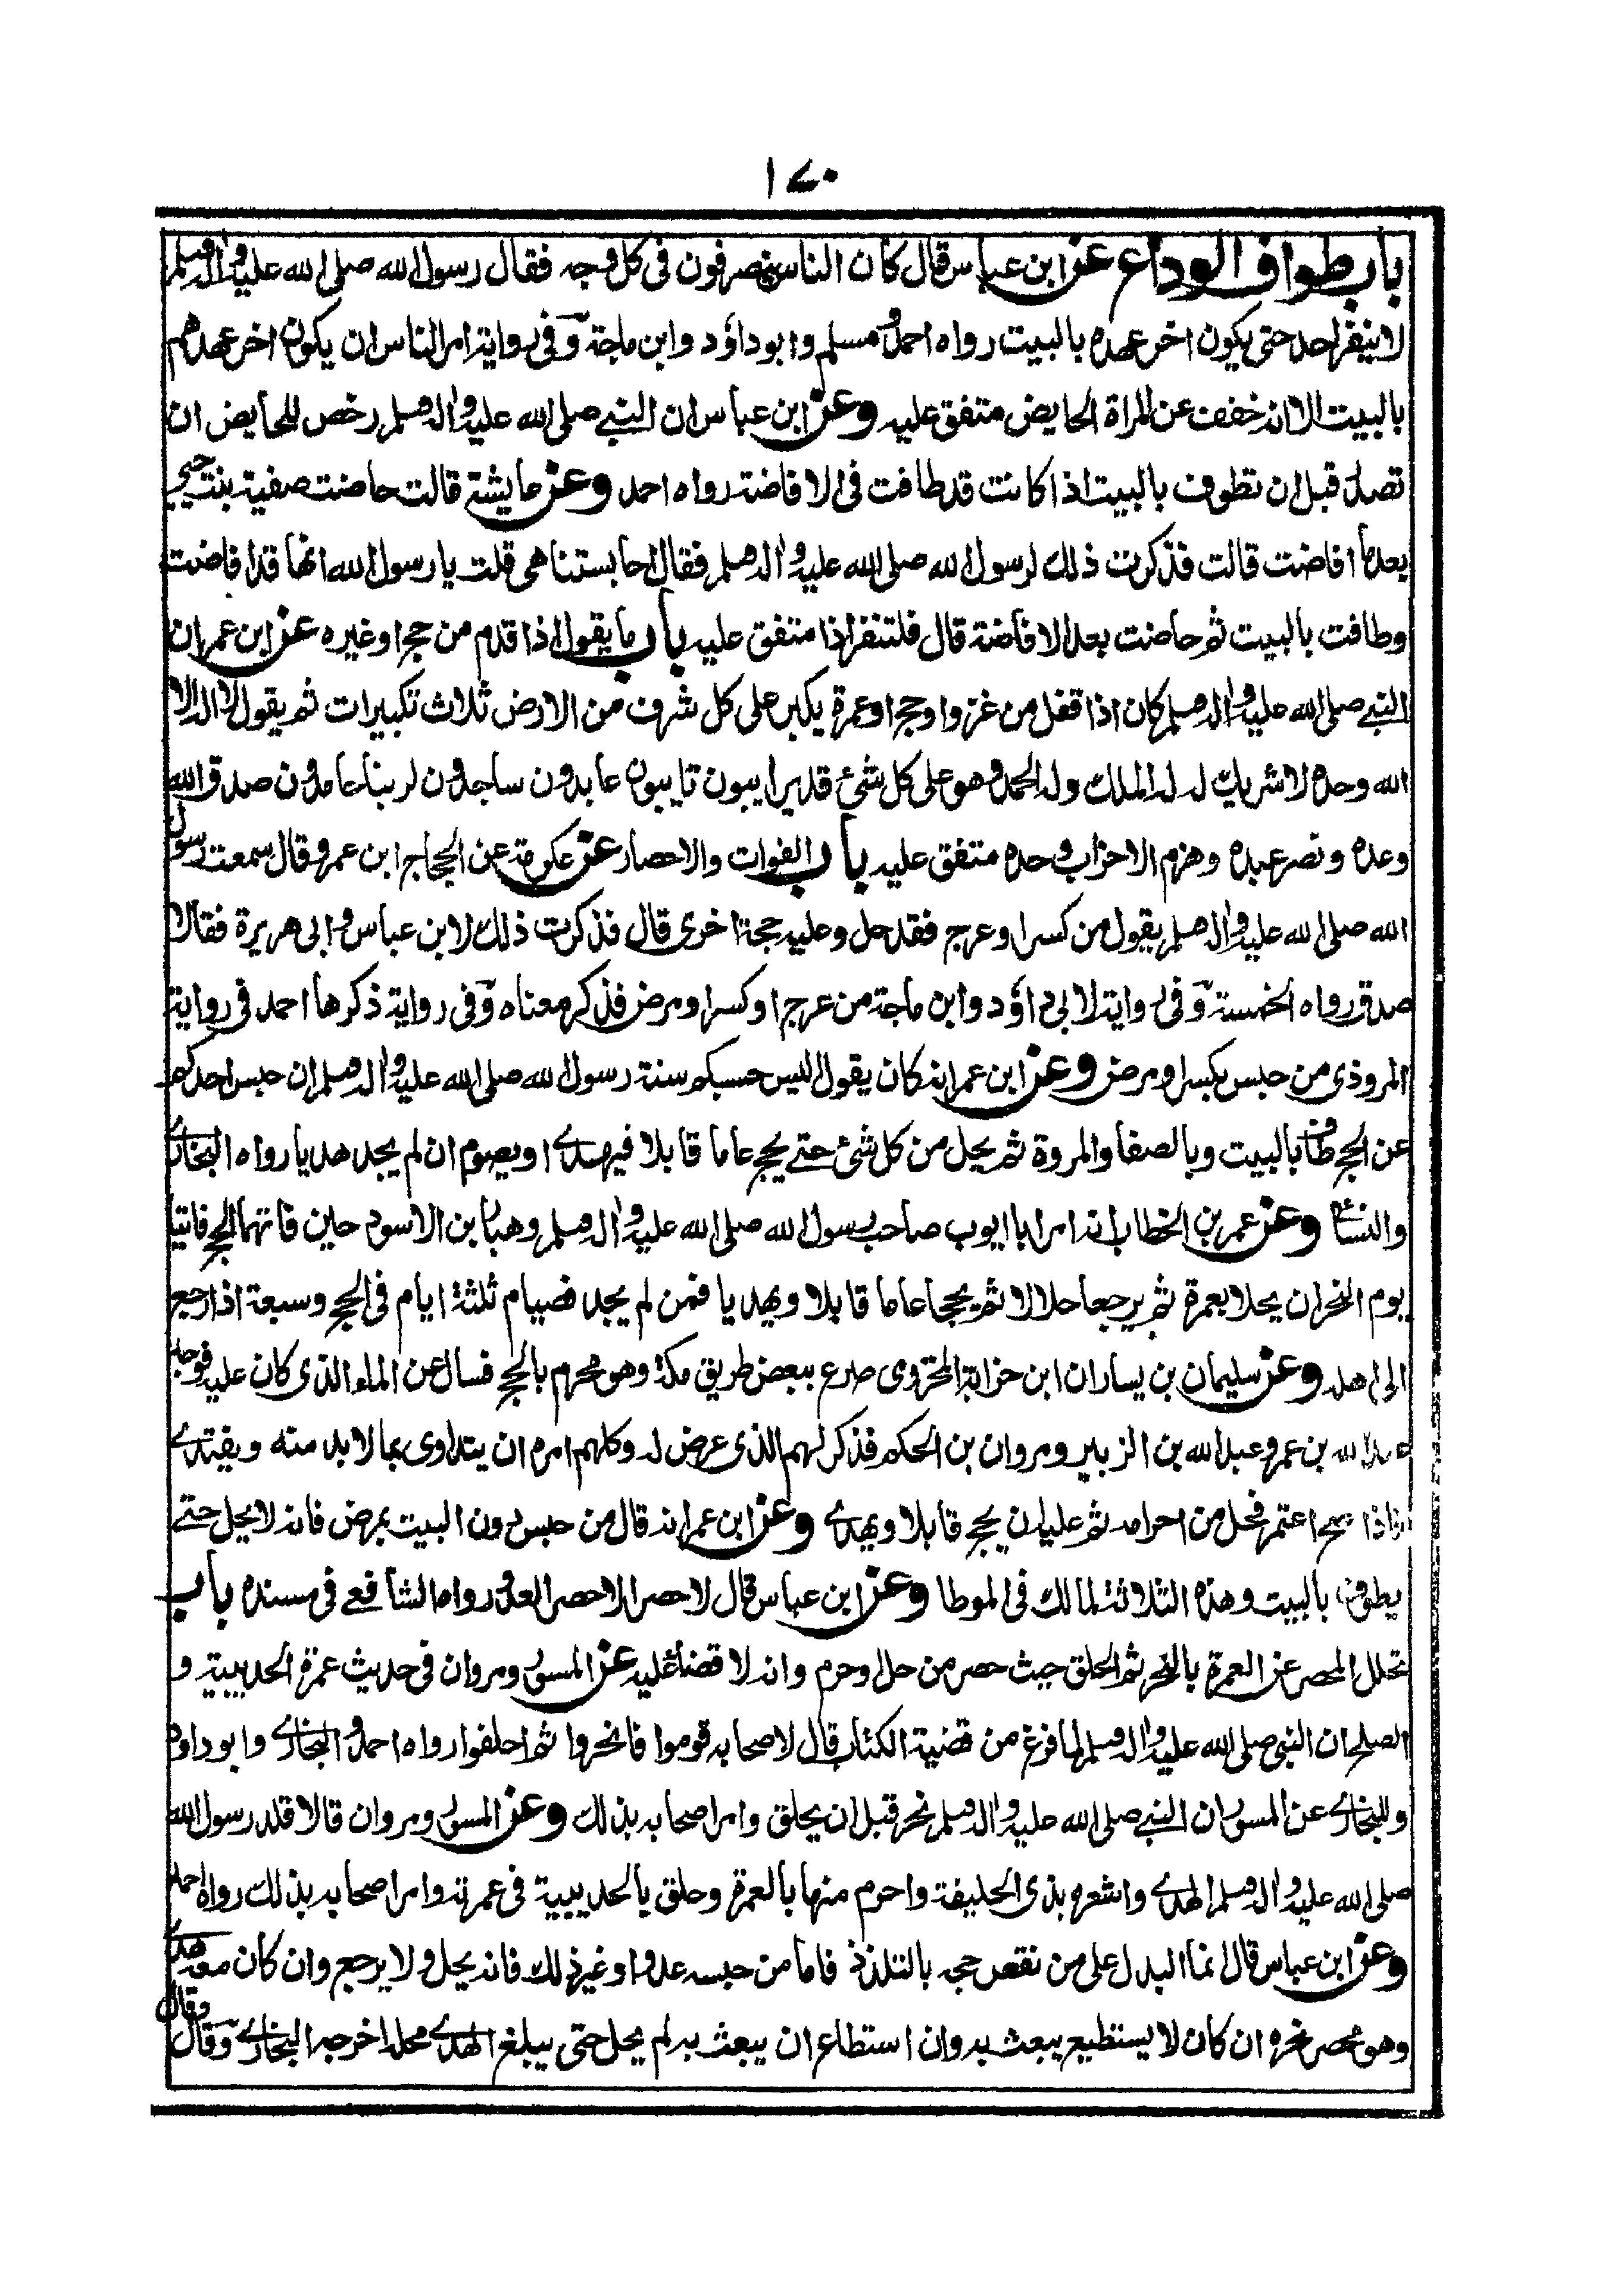 ١٤٠
باب طواف الوداع عن ابن عباس قال كان الناس ينصرفون فى كل وجه فقال رسول الله صلى الله عليه واله وسلم
لا ينفر احد حتى يكون اخر عهده بالبيت رواه احمد ومسلم وابو داؤد وابن ماجة وفى رواية امر الناس ان يكون اخر عهدهم
بالبيت الا انه خفف عن المراة الحايض متفق عليه وعن ابن عباس ان النبى صلى الله عليه واله وسلم رخص للحايض ان
تصدر قبل ان تطوف بالبيت اذا كانت قد طافت فى الافاضة رواه احمد وعن عايشة قالت حاضت صفية بنت حيى
بعد ما افاضت قالت فذكرت ذلك لرسول الله صلى الله عليه واله وسلم فقال احابستنا هى قلت يا رسول الله انها قد افاضت
وطافت بالبيت ثم حاضت بعد الافاضة قال فلتنفر اذا متفق عليه باب ما يقول اذا قدم من حج او غيره عن ابن عمر ان
النبى صلى الله عليه واله وسلم كان اذا قفل من غزو او حج او عمرة يكبر على كل شرف من الارض ثلاث تكبيرات ثم يقول لا اله الا
الله وحده لا شريك له له الملك وله الحمد وهو على كل شئ قدير ايبون تايبون عابدون ساجدون لربنا حامدون صدق الله
وعده ونصر عبده وهزم الاحزاب وحده متفق عليه باب الفوات والاحصار عن عكرمة عن الحجاج ابن عمرو قال سمعت رسول
الله صلى الله عليه واله وسلم يقول من كسر او عرج فقد حل وعليه حجة اخرى قال فذكرت ذلك لابن عباس وابى هريرة فقالا
صدق رواه الخمسة وفى رواية لابى داؤد وابن ماجة من عرج او كسر او مرض فذكر معناه وفى رواية ذكرها احمد فى رواية
المروذى من حبس بكسر او مرض وعن ابن عمر انه كان يقول اليس حسبكم سنة رسول الله صلى الله عليه واله وسلم ان حبس احدكم
عن الحج طاف بالبيت وبالصفا والمروة ثم يحل من كل شئ حتى يحج عاما قابلا فيهدى او يصوم ان لم يجد هديا رواه البخارى
والنسائى وعن عمر بن الخطاب انه امر ابا ايوب صاحب رسول الله صلى الله عليه واله وسلم وهبار بن الاسود حين فاتهما الحج فاتيا
يوم النحر ان يحلا بعمرة ثم يرجعا حلالا ثم يحجا عاما قابلا ويهديا فمن لم يجد فصيام ثلثة ايام فى الحج وسبعة اذا رجع
الى اهله وعن سليمان بن يسار ان ابن حزابة المخزومى صرع ببعض طريق مكة وهو محرم بالحج فسال عن الماء الذى كان عليه فوجد
عبد الله بن عمر وعبد الله بن الزبير ومروان بن الحكم فذكر لهم الذى عرض له وكلهم امره ان يتداوى بما لا بد منه ويفتدى
فاذا صح اعتمر فحل من احرامه ثم عليه ان يحج قابلا ويهدى وعن ابن عمر انه قال من حبس دون البيت بمرض فانه لا يحل حتى
يطوف بالبيت وهذه الثلاثة لمالك فى الموطا وعن ابن عباس قال لا حصر الا حصر العدو رواه الشافعى فى مسنده باب
تحلل المحصر عن العمرة بالنحر ثم الحلق حيث حصر من حل او حرم وانه لا قضاء عليه عن المسور ومروان فى حديث عمرة الحديبية و
الصلح ان النبى صلى الله عليه واله وسلم لما فرغ من قضية الكتاب قال لاصحابه قوموا فانحروا ثم احلقوا رواه احمد والبخارى وابو داود
وللبخارى عن المسور ان النبى صلى الله عليه واله وسلم نحر قبل ان يحلق وامر اصحابه بذلك وعن المسور ومروان قالا قلد رسول الله
صلى الله عليه واله وسلم الهدى واشعره بذى الحليفة واحرم منها بالعمرة وحلق بالحديبية فى عمرته وامر اصحابه بذلك رواه احمد
وعن ابن عباس قال انما البدل على من نقص حجه بالتلذذ فاما من حبسه عدو او غير ذلك فانه يحل ولا يرجع وان كان معه هدى
وهو محصر نحره ان كان لا يستطيع يبعث به وان استطاع ان يبعث به لم يحل حتى يبلغ الهدى محله اخرجه البخارى وقال
وقال